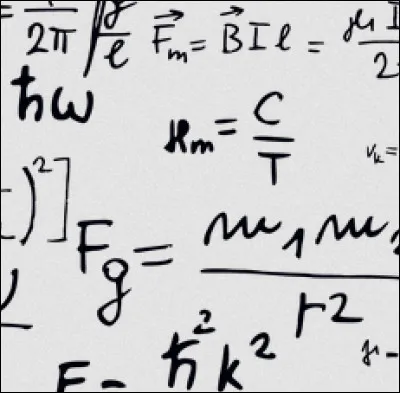 = 1/2π √g/ℓ F⃗m = B⃗Iℓ = μI/2
ħω
ϰm = C/T
vk =
)²]
Fg = m1m2/r2
ħ²k²
E =